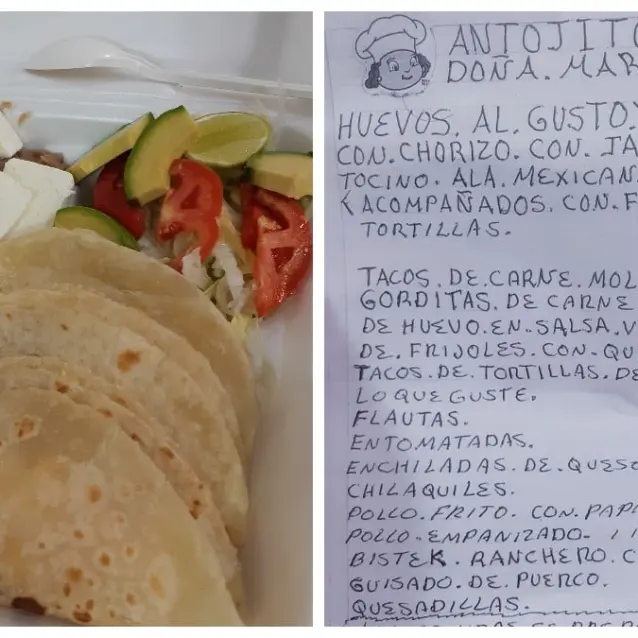 ANTOJITO
DOÑA. MAR
HUEVOS. AL. GUSTO.
CON. CHORIZO. CON. JA
TOCINO. ALA. MEXICAN
ACOMPAÑADOS. CON. F
TORTILLAS.
TACOS. DE. CARNE. MOL
GORDITAS. DE CARNE
DE HUEVO. EN. SALSA. V
DE. FRIJOLES. CON. QU
TACOS. DE. TORTILLAS. DE
LO QUE GUSTE.
FLAUTAS.
ENTOMATADAS.
ENCHILADAS. DE. QUESO
CHILAQUILES.
POLLO. FRITO. CON. PAP
POLLO. EMPANIZADO.
BISTEK. RANCHERO. C
GUISADO. DE. PUERCO.
QUESADILLAS.